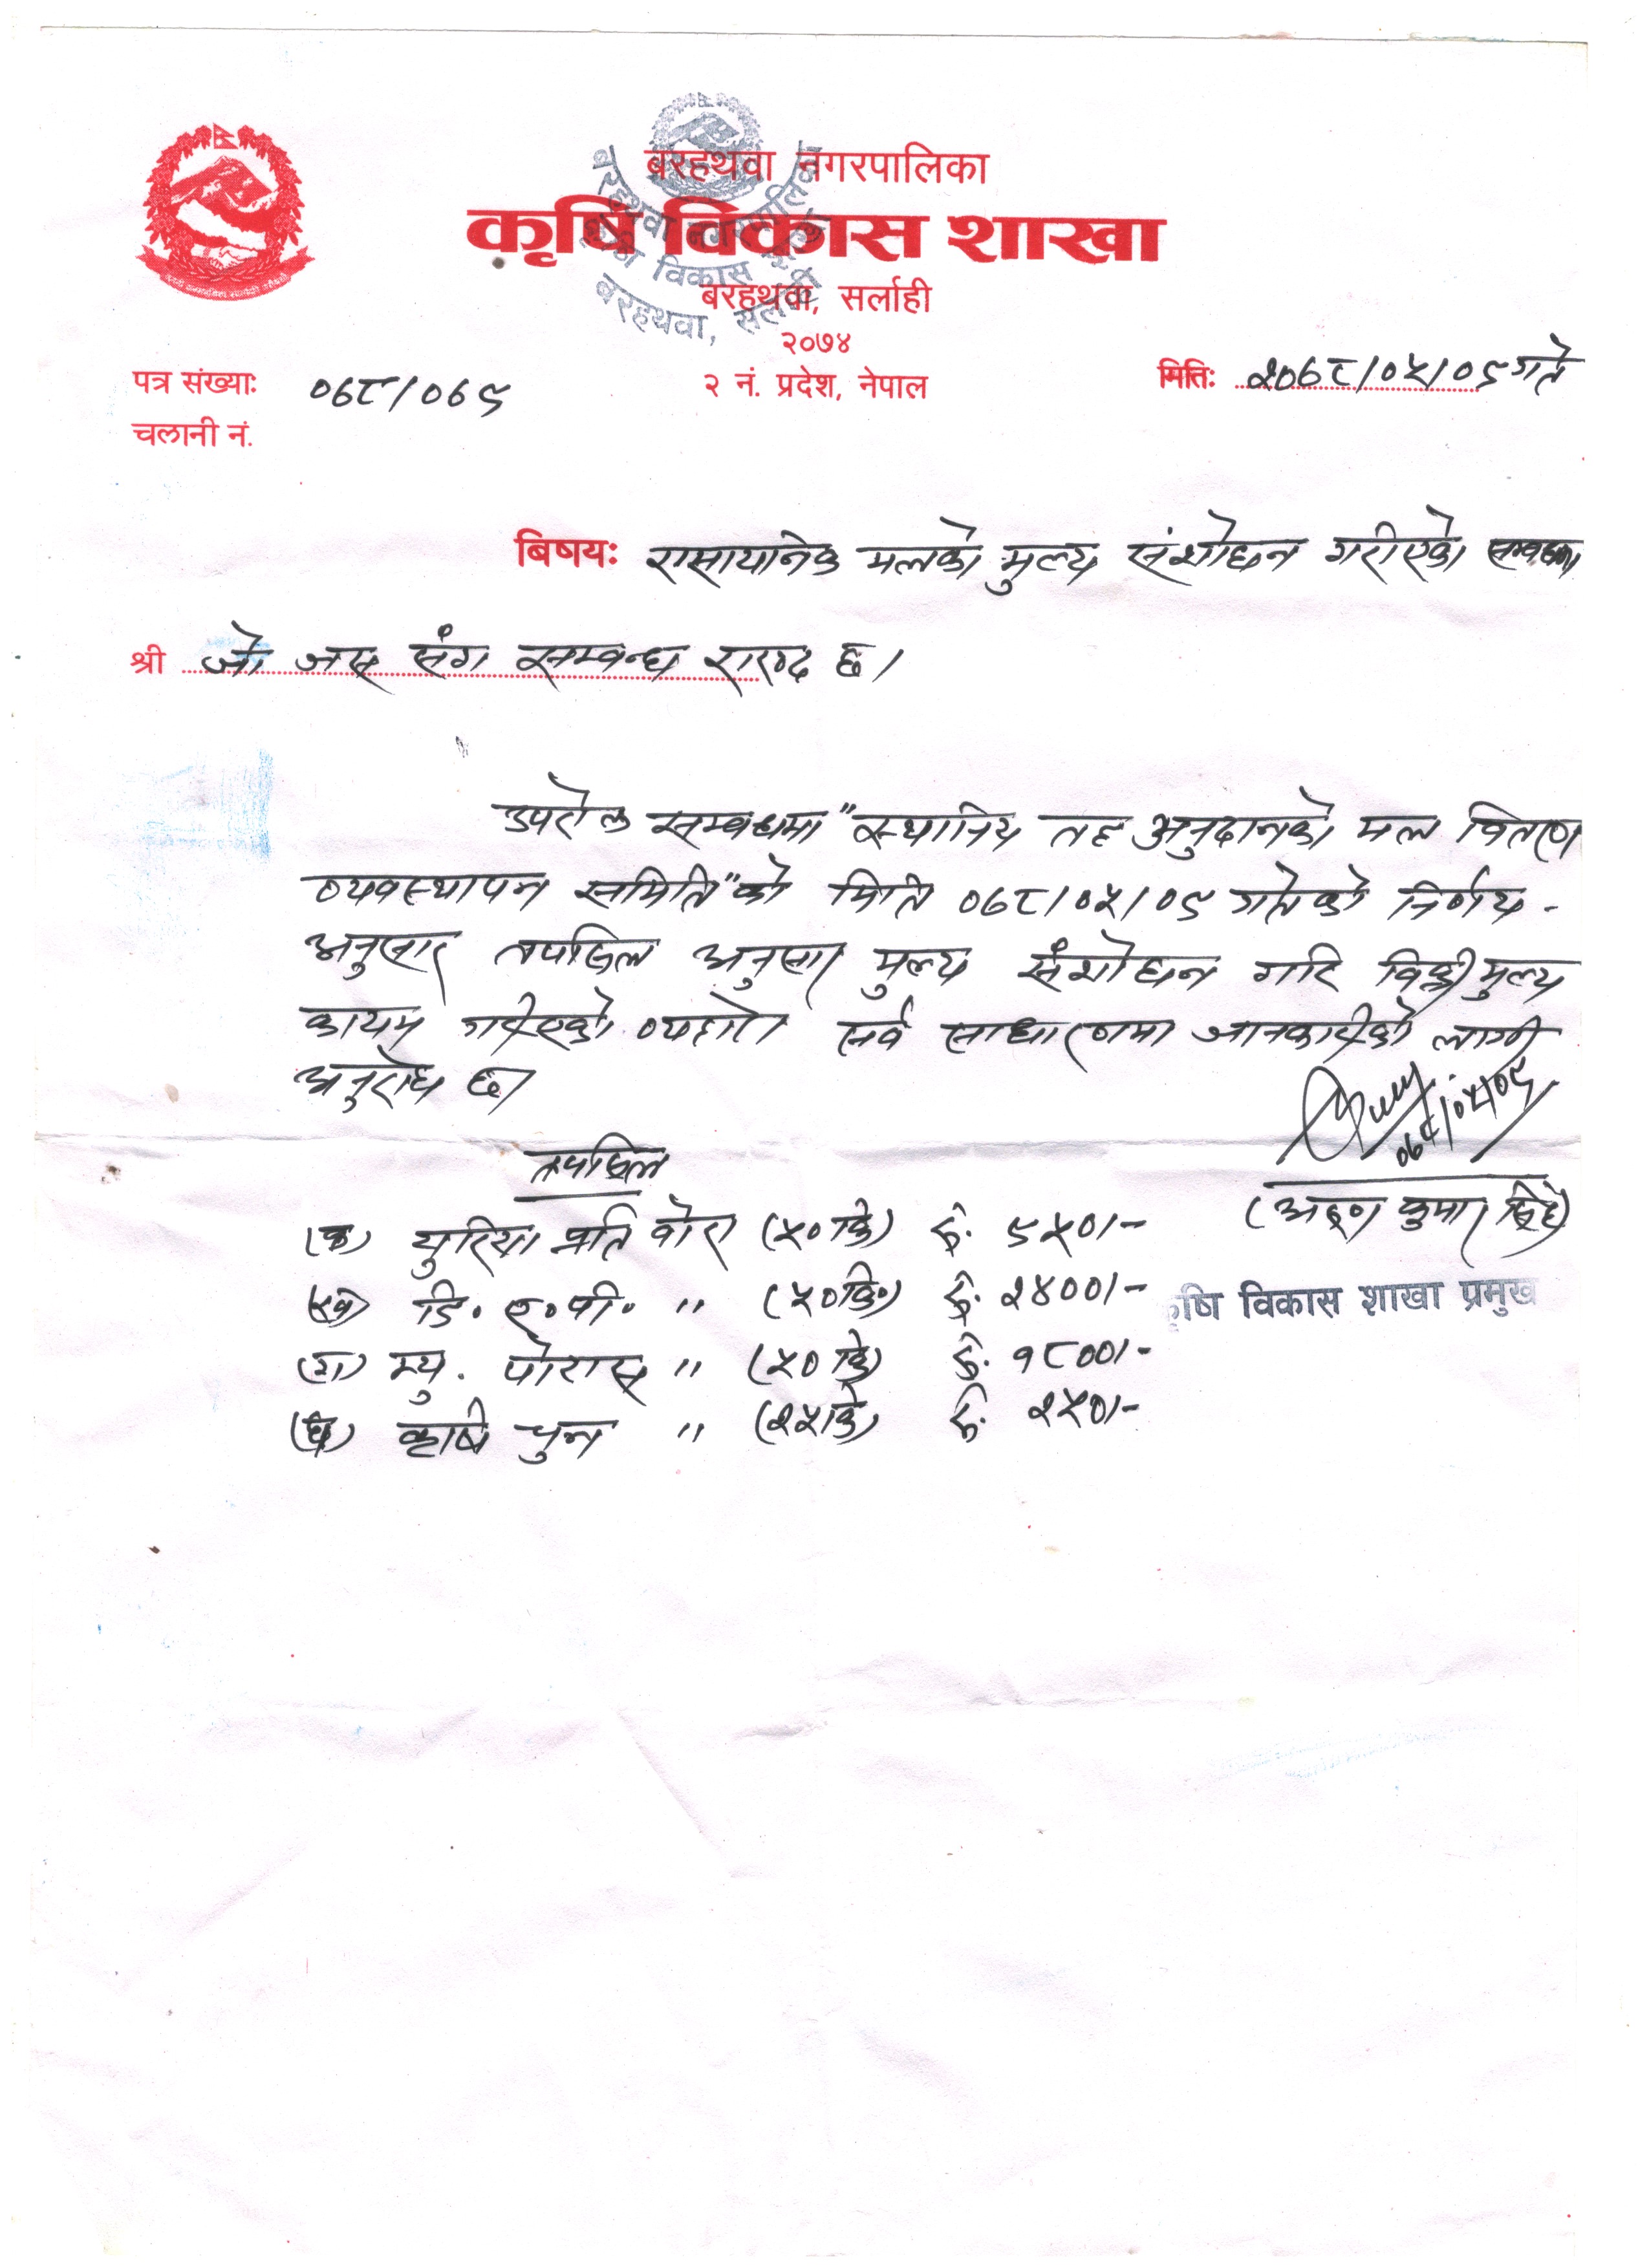 बरहथवा नगरपालिका
कृषि विकास शाखा
बरहथवा, सर्लाही
२०७४
२ नं. प्रदेश, नेपाल
बरहथवा नगरपालिका
कृषि विकास शाखा
बरहथवा, सर्लाही
पत्र संख्याः ०७८/०७९
मितिः २०७८/०५/०९ गते
चलानी नं.
बिषयः रासायनिक मलको मुल्य संशोधन गरीएको सम्बन्धमा
श्री जो जस संग सम्बन्ध राख्दछ।
उपरोक्त सम्बन्धमा "स्थानिय तह अनुदानको मल वितरण
व्यवस्थापन समिति" को मिति ०७८/०५/०९ गतेको निर्णय -
अनुसार तपसिल अनुसार मुल्य संशोधन गरि विक्री मुल्य
कायम गरीएको व्यहोरा सर्व साधारणमा जानकारीको लागी
अनुरोध छ।
०७८/०५/०९
तपसिल
(अरुण कुमार सिंह)
कृषि विकास शाखा प्रमुख
(क) युरिया प्रति बोरा (५० कि) रु. ९५०/-
(ख) डि. ए. पी. " (५० कि.) रु. २४००/-
(ग) म्यु. पोटास " (५० कि) रु. १८००/-
(घ) कृषि चुन " (२५ कि) रु. २५०/-